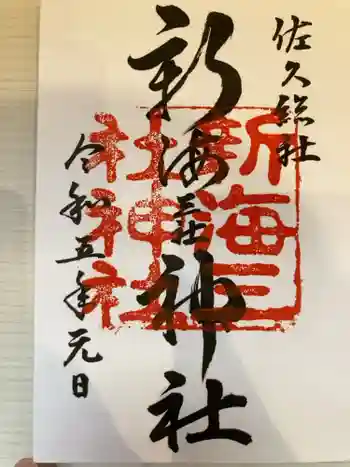 佐久総社
新海三社神社
令和五年元日
新海三
社神社